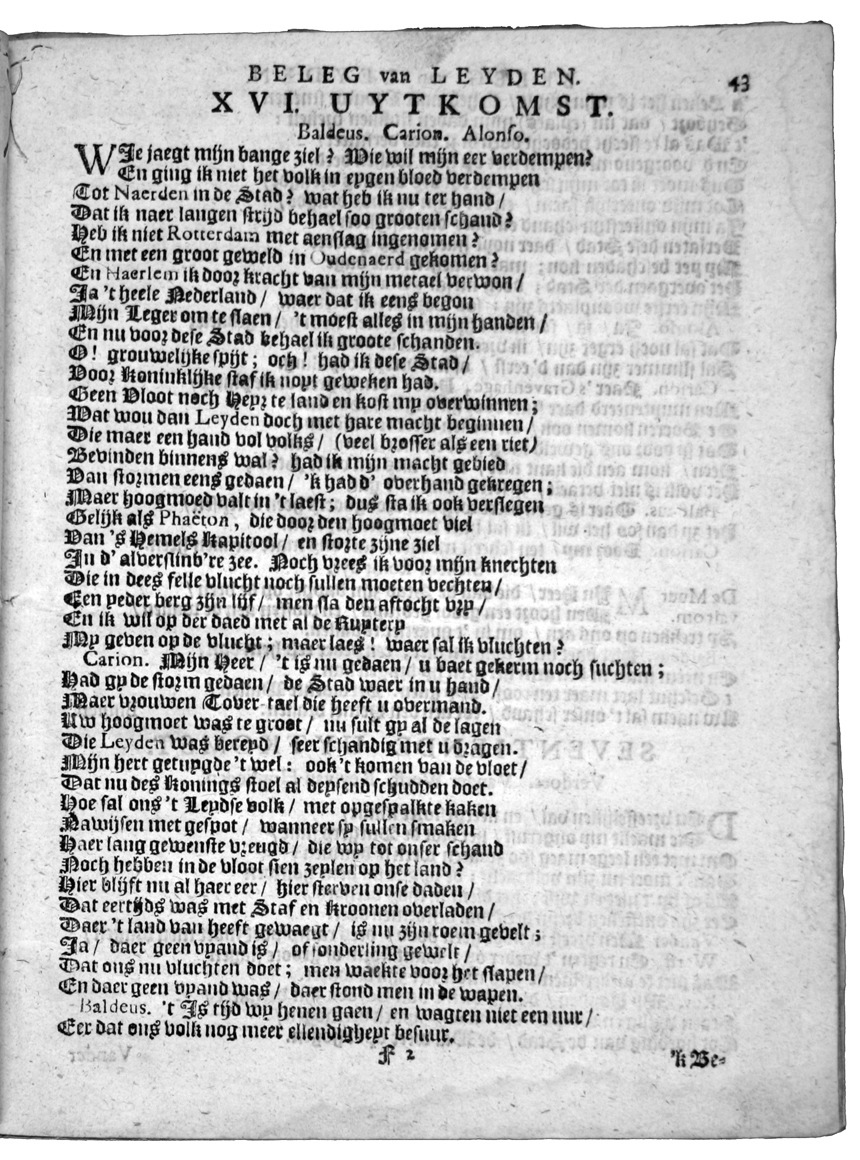 BELEG van LEYDEN. 43
XVI. UYTKOMST.
Baldeus. Carion. Alonso.
WIe jaegt mijn bange ziel? Wie wil mijn eer verdempen?
En ging ik niet het volk in eygen bloed verdempen
Tot Naerden in de Stad? wat heb ik nu ter hand/
Dat ik naer langen strijd behael soo grooten schand?
Heb ik niet Rotterdam met aenslag ingenomen?
En met een groot geweld in Oudenaerd gekomen?
En Haerlem ik door kracht van mijn metael verwon/
Ja 't heele Nederland/ waer dat ik eens begon
Mijn Leger om te slaen/ 't moest alles in mijn handen/
En nu voor dese Stad behael ik groote schanden.
O! grouwelijke spijt; och! had ik dese Stad/
Voor Koninklijke staf ik noyt geweken had.
Geen Vloot noch Heyr te land en kost my overwinnen;
Wat wou dan Leyden doch met hare macht beginnen/
Die maer een hand vol volks/ (veel brosser als een riet)
Bevinden binnens wal? had ik mijn macht gebied
Van stormen eens gedaen/ 'k had d' overhand gekregen;
Maer hoogmoed valt in 't laest; dus sta ik ook verslegen
Gelijk als Phaëton, die door den hoogmoet viel
Van 's Hemels Kapitool/ en stortte zijne ziel
In d' alverslinb're zee. Noch vrees ik voor mijn knechten
Die in dees felle vlucht noch sullen moeten vechten/
Een yeder berg zijn lijf/ men sla den aftocht vry/
En ik wil op der daed met al de Ruytery
My geven op de vlucht; maer laes! waer sal ik vluchten?
Carion. Mijn Heer/ 't is nu gedaen/ u baet gekerm noch suchten;
Had gy de storm gedaen/ de Stad waer in u hand/
Maer vrouwen Tover-tael die heeft u overmand.
Uw hoogmoet was te groot/ nu sult gy al de lagen
Die Leyden was bereyd/ seer schandig met u dragen.
Mijn hert getuygde 't wel: ook 't komen van de vloet/
Dat nu des Konings stoel al deysend schudden doet.
Hoe sal ons 't Leydse volk/ met opgespalkte kaken
Nawijsen met gespot/ wanneer sy sullen smaken
Haer lang gewenste vreugd/ die wy tot onser schand
Noch hebben in de vloot sien zeylen op het land?
Hier blijft nu al haer eer/ hier sterven onse daden/
Dat eertijds was met Staf en Kroonen overladen/
Daer 't land van heeft gewaegt/ is nu zijn roem gevelt;
Ja/ daer geen vyand is/ of sonderling gewelt/
Dat ons nu vluchten doet; men waekte voor het slapen/
En daer geen vyand was/ daer stond men in de wapen.
Baldeus. 't Is tijd wy henen gaen/ en wagten niet een uur/
Eer dat ons volk nog meer ellendigheyt besuur.
F 2 'k Be-